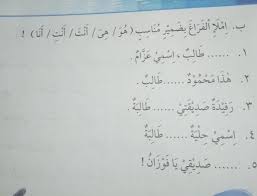 ب. اِمْلَأِ الْفَرَاغَ بِضَمِيْرٍ مُنَاسِبٍ (هُوَ / هِيَ / أَنْتَ / أَنْتِ / أَنَا) !
١. ...... طَالِبٌ، اِسْمِيْ عَزَّامٌ.
٢. هٰذَا مَحْمُوْدٌ ...... طَالِبٌ.
٣. رَفِيْدَةُ صَدِيْقَتِيْ ...... طَالِبَةٌ.
٤. اِسْمِيْ حِلْيَةٌ ...... طَالِبَةٌ
٥. ...... صَدِيْقِيْ يَا فَوْزَانُ !